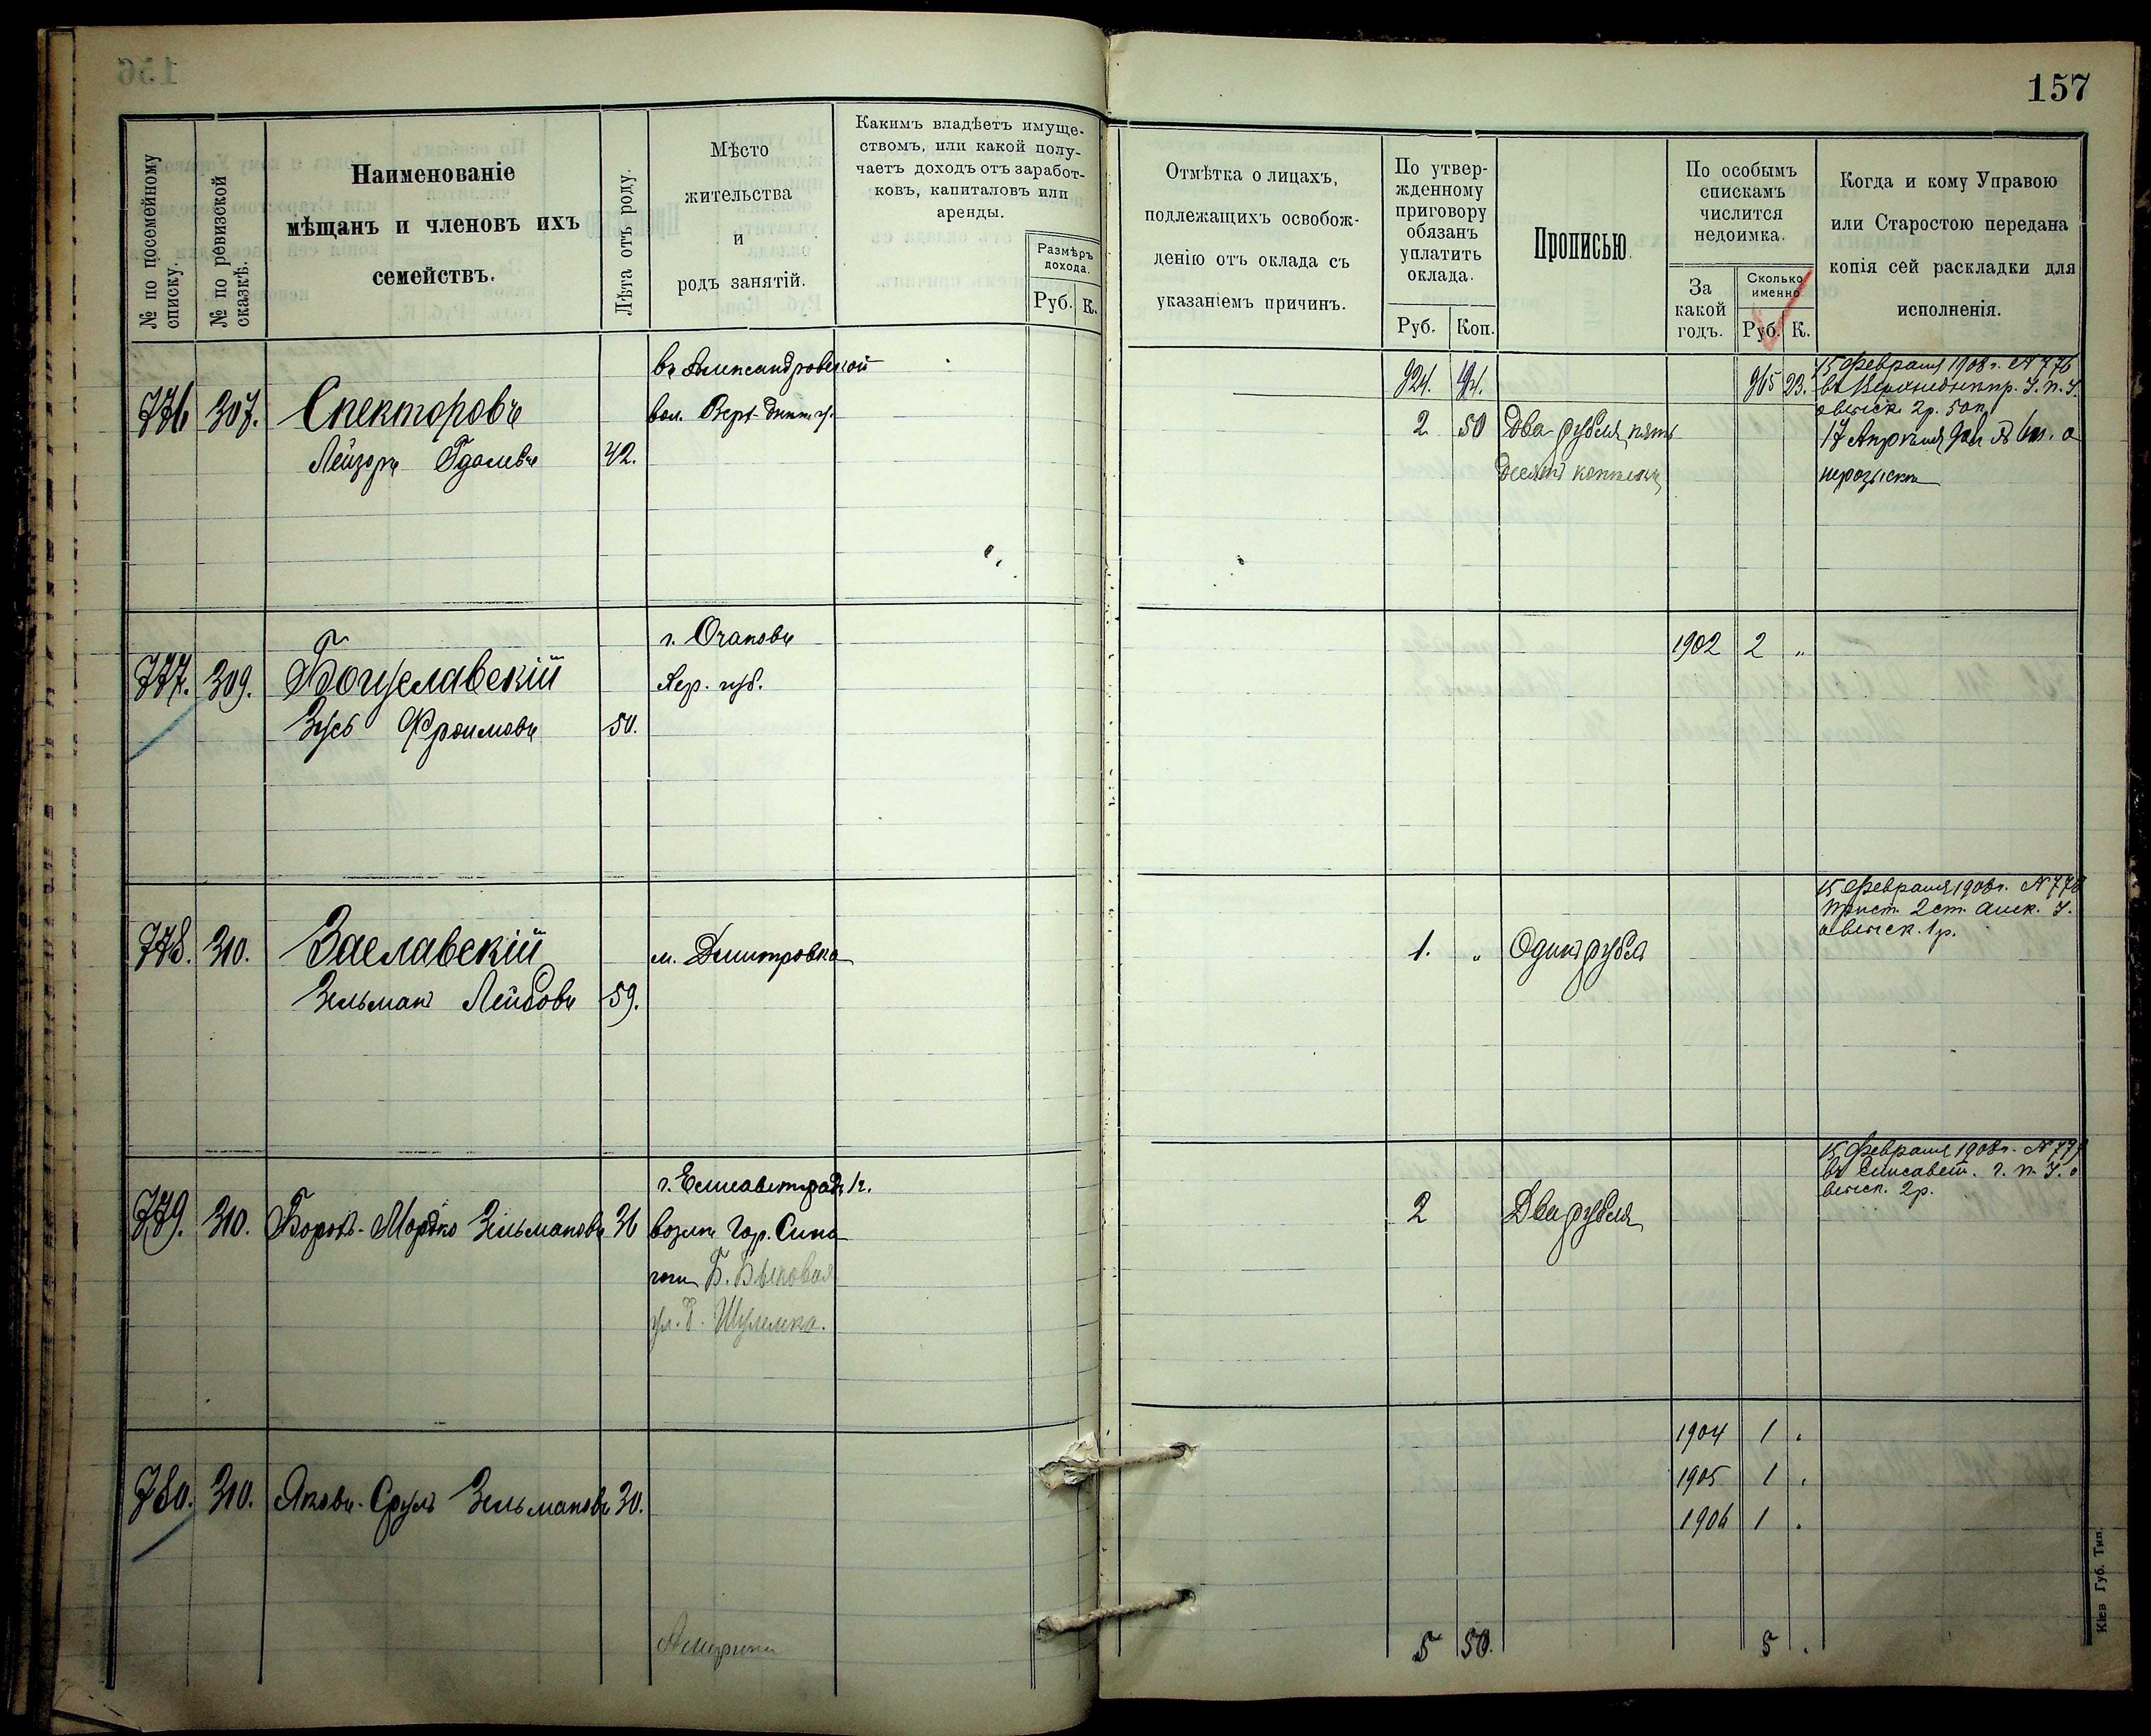 157
№ по посемейному
списку.
№ по ревизской
сказкѣ.
Наименованіе
мѣщанъ и членовъ ихъ
семействъ.
Лѣта отъ роду.
Мѣсто
жительства
и
родъ занятій.
Какимъ владѣетъ имуще-
ствомъ, или какой полу-
чаетъ доходъ отъ заработ-
ковъ, капиталовъ или
аренды.
Размѣръ
дохода.
Руб. К.
Отмѣтка о лицахъ,
подлежащихъ освобож-
денію отъ оклада съ
указаніемъ причинъ.
По утвер-
жденному
приговору
обязанъ
уплатить
оклада.
Руб. Коп.
Прописью.
По особымъ
спискамъ
числится
недоимка.
За
какой
годъ.
Сколько
именно.
Руб. К.
Когда и кому Управою
или Старостою передана
копія сей раскладки для
исполненія.
въ Александровской
924. 915 23. 15 Февраля 1908 г. N 776
776 307. Спекторовъ
вол. Верх-Днпр. у.
2 50 Два рубля пять
десятъ копѣекъ
о взыск. 2 р. 50 к.
Лейзоръ Гдалевъ 42.
17 Апрѣля
нерозыскъ
г. Очаковъ
1902 2 "
777. 309. Богуславскій
Хер. губ.
Зусь Фроимовъ 50.
15 Февраля 1908 г. N 778
2 ст. Алек. У.
о взыск. 1 р.
778. 310. Заславскій м. Дмитровка 1. " Одинъ рубль
Зельманъ Лейбовъ 59.
15 Февраля 1908 г. N 779
въ Елисавет. г. п. У. о
взыск. 2 р.
г. Елисаветградъ
779. 310. Борохъ-Мордко Зельмановъ 36 возлѣ Гор. Сина
гоги Б. Быковая
2 Два рубля
1904 1 "
1905 1 "
780. 310. Яковъ-Сруль Зельмановъ 30.
1906 1 "
5 50. 5 "
Кіев Губ. Тип.
156